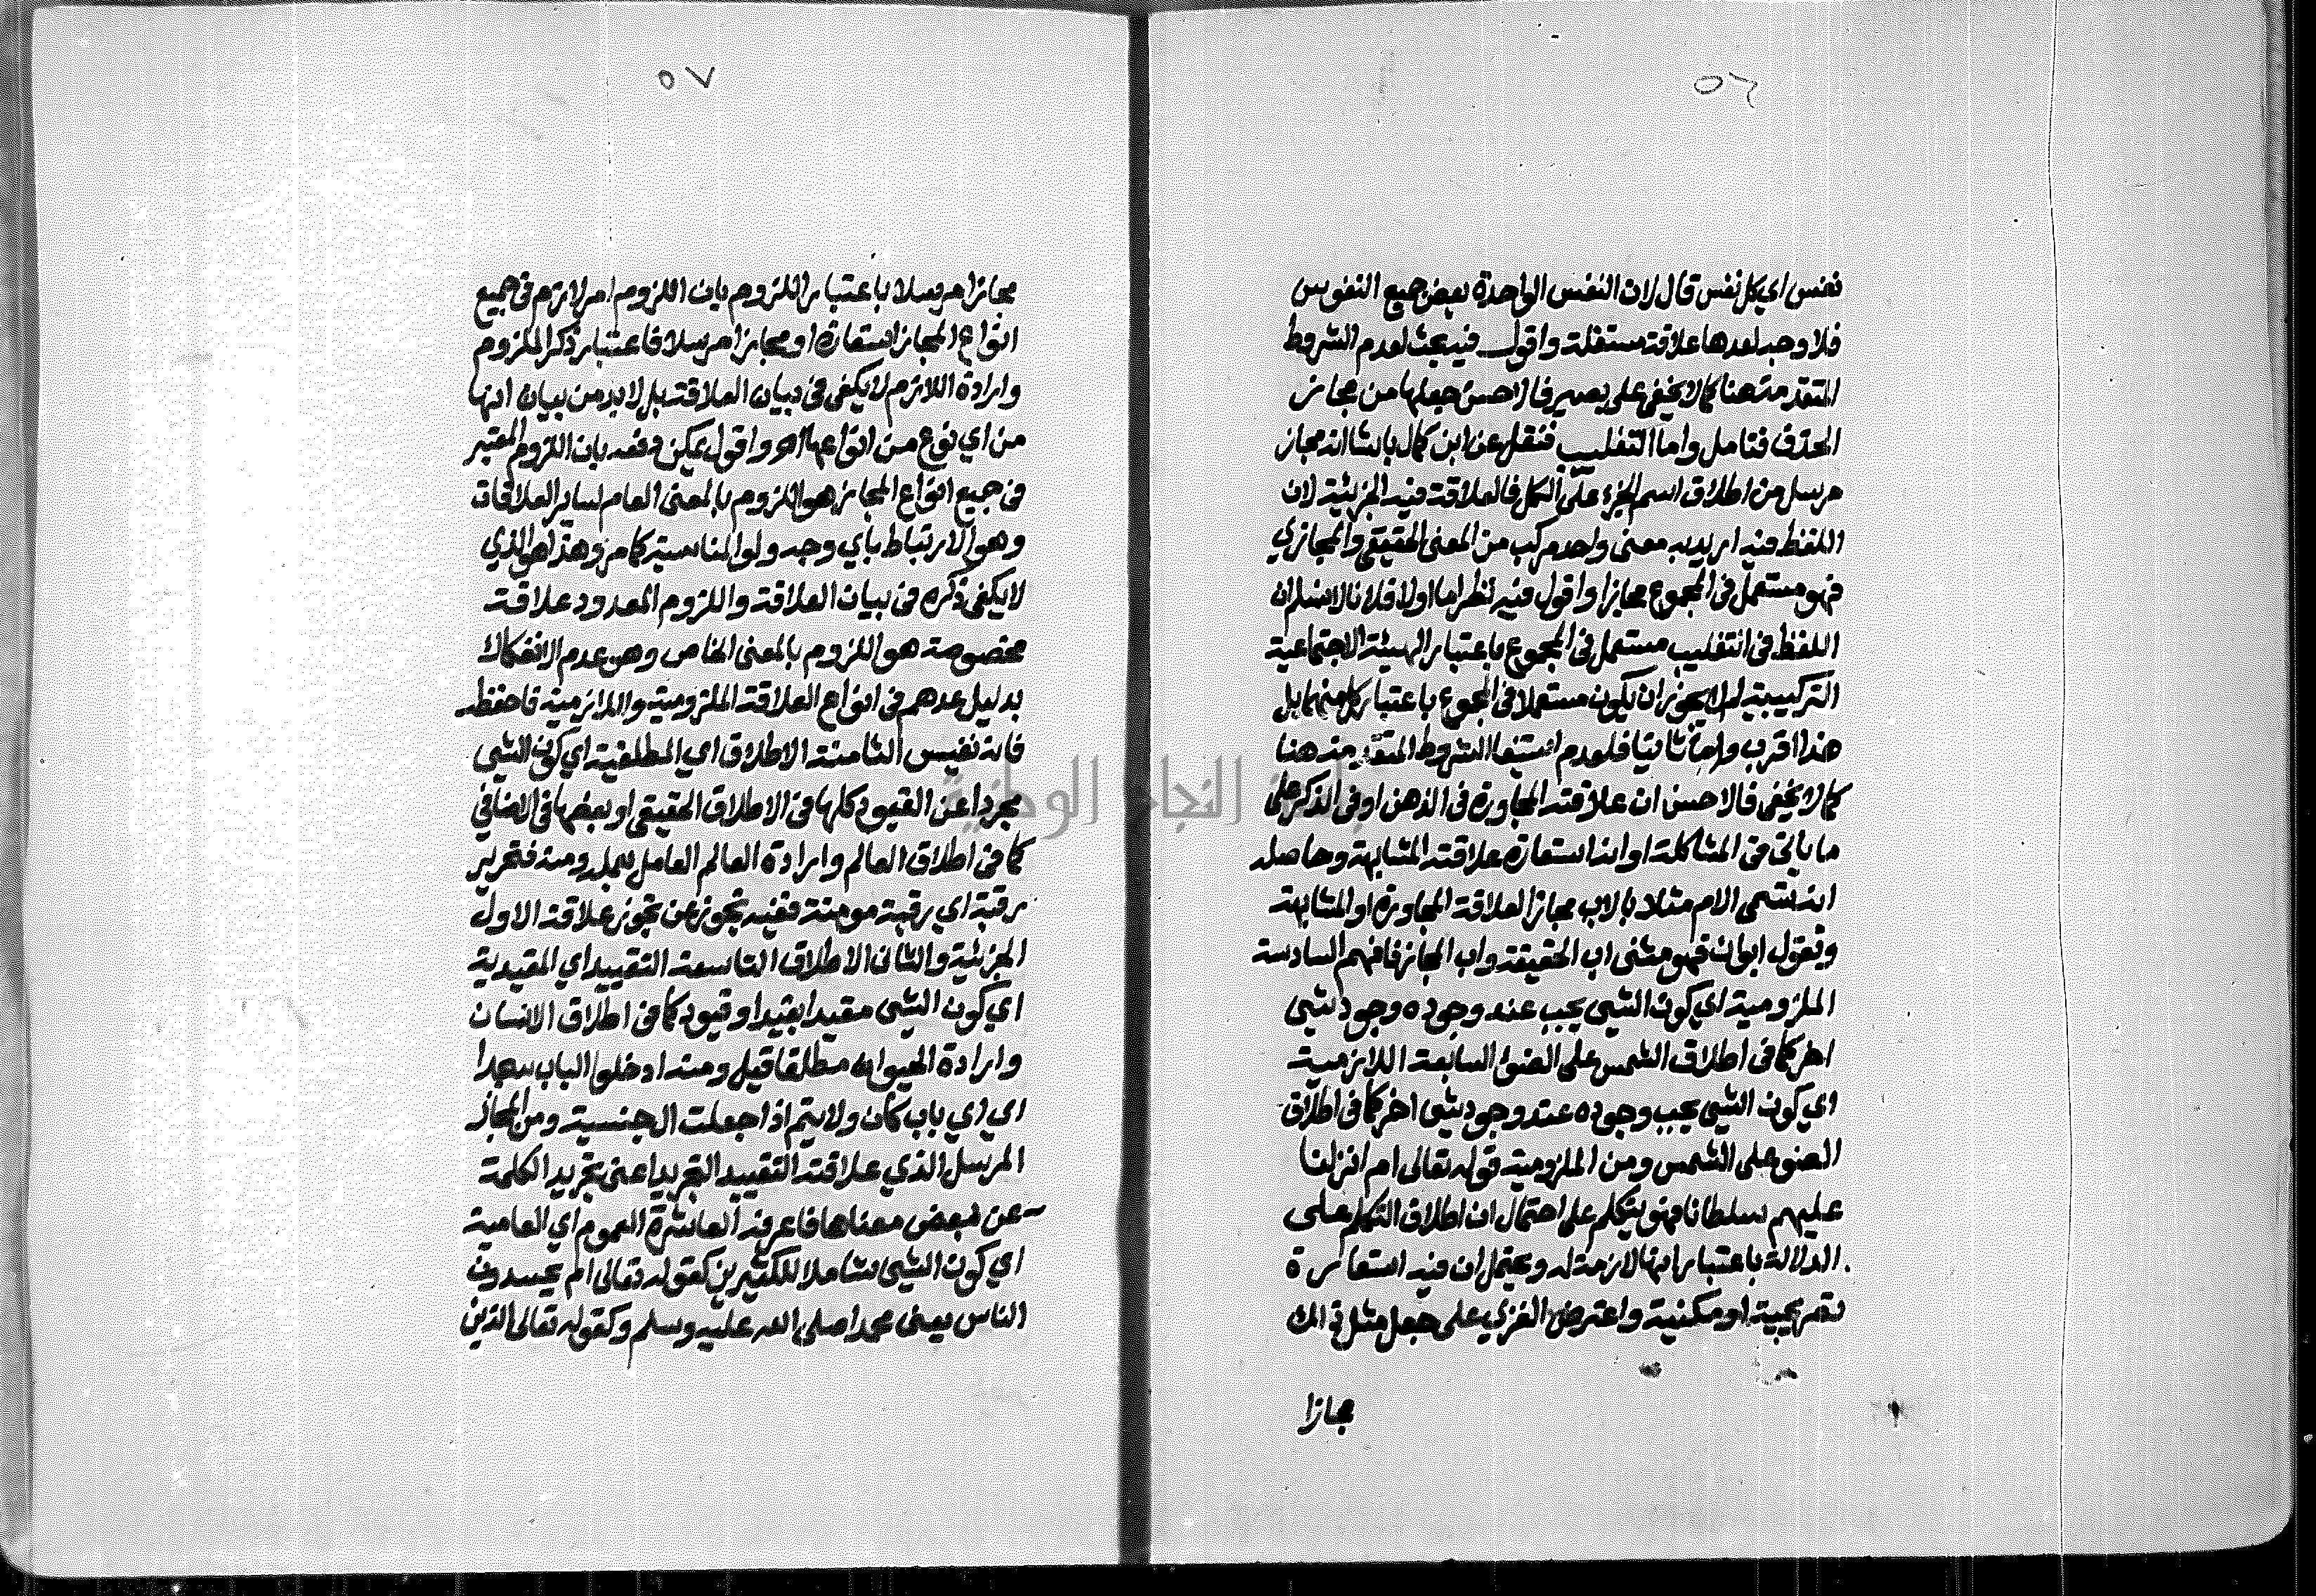 ٥٦
نفس اي كل نفس قال لان النفس الواحدة بعض جميع النفوس
فلا وجه لعدها علاقة مستقلة واقول فيه بحث لعدم الشروط
المتقدمة هنا كما لا يخفى على بصير فالاحسن جعلها من مجاز
الحذف فتامل واما التغليب فنقل عن ابن كمال باشا انه مجاز
مرسل من اطلاق اسم الجزء على الكل فالعلاقة فيه الجزئية لان
اللفظ فيه اريد به معنى واحد مركب من المعنى الحقيقي والمجازي
فهو مستعمل في المجموع مجازا واقول فيه نظر اما اولا فلانا لا نسلم ان
اللفظ في التغليب مستعمل في المجموع باعتبار الهيئة الاجتماعية
التركيبية لم لا يجوز ان يكون مستعملا في المجموع باعتبار كل منهما بل
هذا اقرب واما ثانيا فلعدم استيفا الشروط المتقدمة هنا
كما لا يخفى فالاحسن ان علاقته المجاورة في الذهن او في الذكر على
ما ياتي في المشاكلة او انه استعارة علاقته المشابهة وحاصله
انه تسمى الام مثلا بالاب مجازا لعلاقة المجاورة او المشابهة
وتقول ابوان فهو مثنى اب الحقيقة واب المجاز فافهم السادسة
الملزومية اي كون الشي يجب عند وجوده وجود شي
اخر كما في اطلاق الشمس على الضوء السابعة اللازمية
اي كون الشي يجب وجوده عند وجود شي اخر كما في اطلاق
الضوء على الشمس ومن الملزومية قوله تعالى ام انزلنا
عليهم سلطانا فهو يتكلم على احتمال ان اطلاق التكلم على
الدلالة باعتبار انها لازمة له ويحتمل ان فيه استعارة
تصريحية او مكنية واعترض الغزي على جعل مثل ذلك
مجازا
٥٧
مجازا مرسلا باعتبار اللزوم بان اللزوم امر لازم في جميع
انواع المجاز استعارة او مجازا مرسلا فاعتبار ذكر الملزوم
وارادة اللازم لا يكفي في بيان العلاقة بل لا بد من بيان انها
من اي نوع من انواعها اهـ واقول يمكن دفعه بان اللزوم المعتبر
في جميع انواع المجاز هو اللزوم بالمعنى العام لساير العلاقات
وهو الارتباط باي وجه ولو المناسبة كما مر وهذا هو الذي
لا يكفي ذكره في بيان العلاقة واللزوم المعدود علاقة
مخصوصة هو اللزوم بالمعنى الخاص وهو عدم الانفكاك
بدليل عدهم في انواع العلاقة الملزومية واللازمية فاحفظه
فانه نفيس الثامنة الاطلاق اي المطلقية اي كون الشي
مجردا عن القيود كلها في الاطلاق الحقيقي او بعضها في الاضافي
كما في اطلاق العالم وارادة العالم العامل بعلمه ومنه فتحرير
رقبة اي رقبة مومنة ففيه تجوز عن تجوز علاقة الاول
الجزئية والثاني الاطلاق التاسعة التقييد اي المقيدية
اي كون الشي مقيدا بقيد او قيود كما في اطلاق الانسان
وارادة الحيوان مطلقا قيل ومنه ادخلوا الباب سجدا
اي اي باب كان ولا يتم اذا جعلت ال جنسية ومن المجاز
المرسل الذي علاقته التقييد التجريد اعني تجريد الكلمة
عن بعض معناها فاعرفه العاشرة العموم اي العامية
اي كون الشي شاملا للكثيرين كقوله تعالى ام يحسدون
الناس يعني محمدا صلى الله عليه وسلم وكقوله تعالى الذين